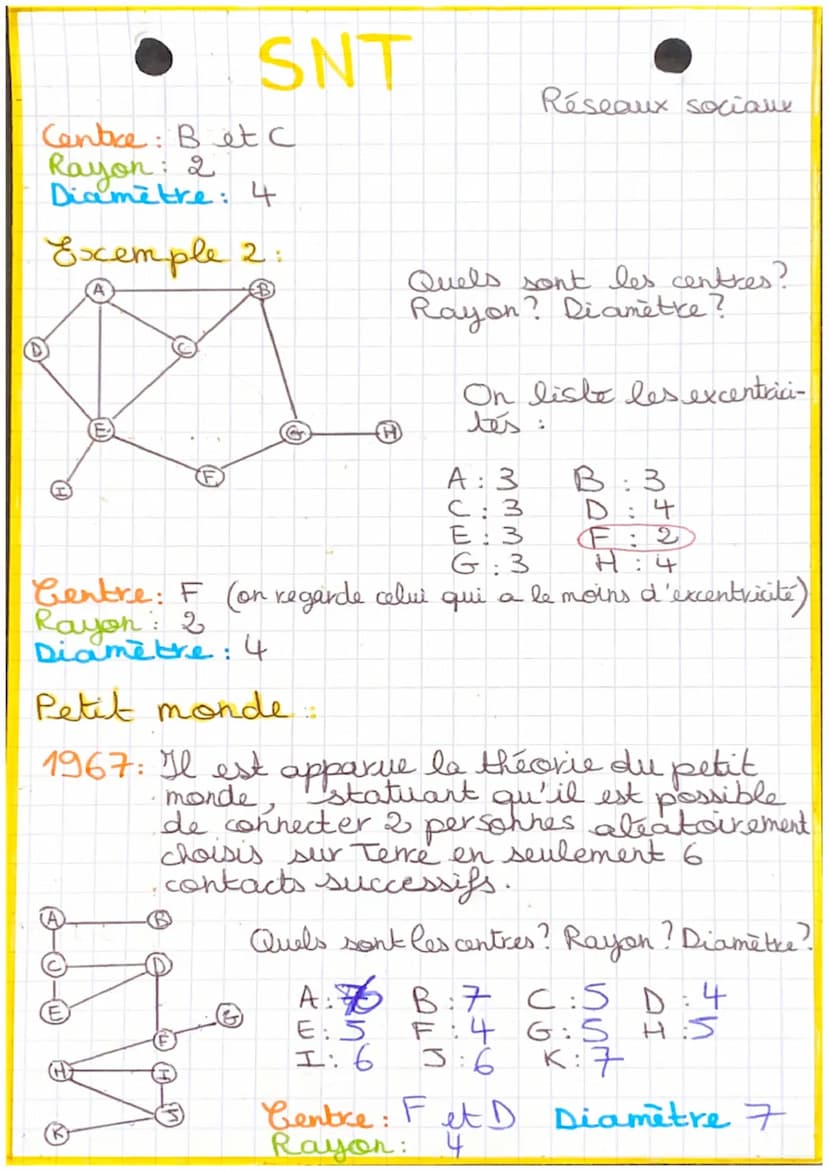 SNT
Réseaux sociaux
Centre : B et C
Rayon : 2
Diamètre : 4
Exemple 2 :
A
B
D
C
E
G
H
I
F
Quels sont les centres?
Rayon? Diamètre?
On liste les excentrici-
tés :
A : 3 B : 3
C : 3 D : 4
E : 3 F : 2
G : 3 H : 4
Centre : F (on regarde celui qui a le moins d'excentricité)
Rayon : 2
Diamètre : 4
Petit monde :
1967 : Il est apparue la théorie du petit
monde, statuant qu'il est possible
de connecter 2 personnes aléatoirement
choisis sur Terre en seulement 6
contacts successifs.
A
B
C
D
E
G
F
H
I
J
K
Quels sont les centres? Rayon? Diamètre?
A : 6 B : 7 C : 5 D : 4
E : 5 F : 4 G : 5 H : 5
I : 6 J : 6 K : 7
Centre : F et D Diamètre 7
Rayon : 4